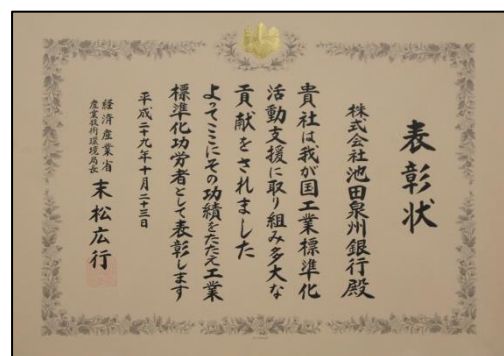 表彰状
株式会社池田泉州銀行殿
貴社は我が国工業標準化
活動支援に取り組み多大な
貢献をされました
よってここにその功績をたたえ工業
標準化功労者として表彰します
平成二十九年十月二十三日
経済産業省
産業技術環境局長 末松広行